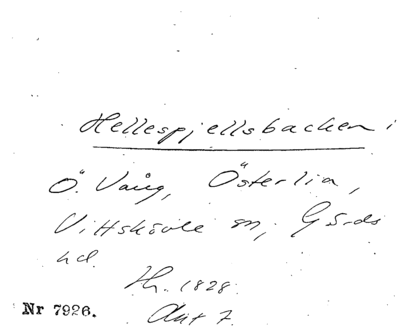 Hellespjellsbacken i
Ö. Vång, Österlia,
Vittskövle sn, Gärds
hd.
Hn. 1828.
Akt 7.
Nr 7926.